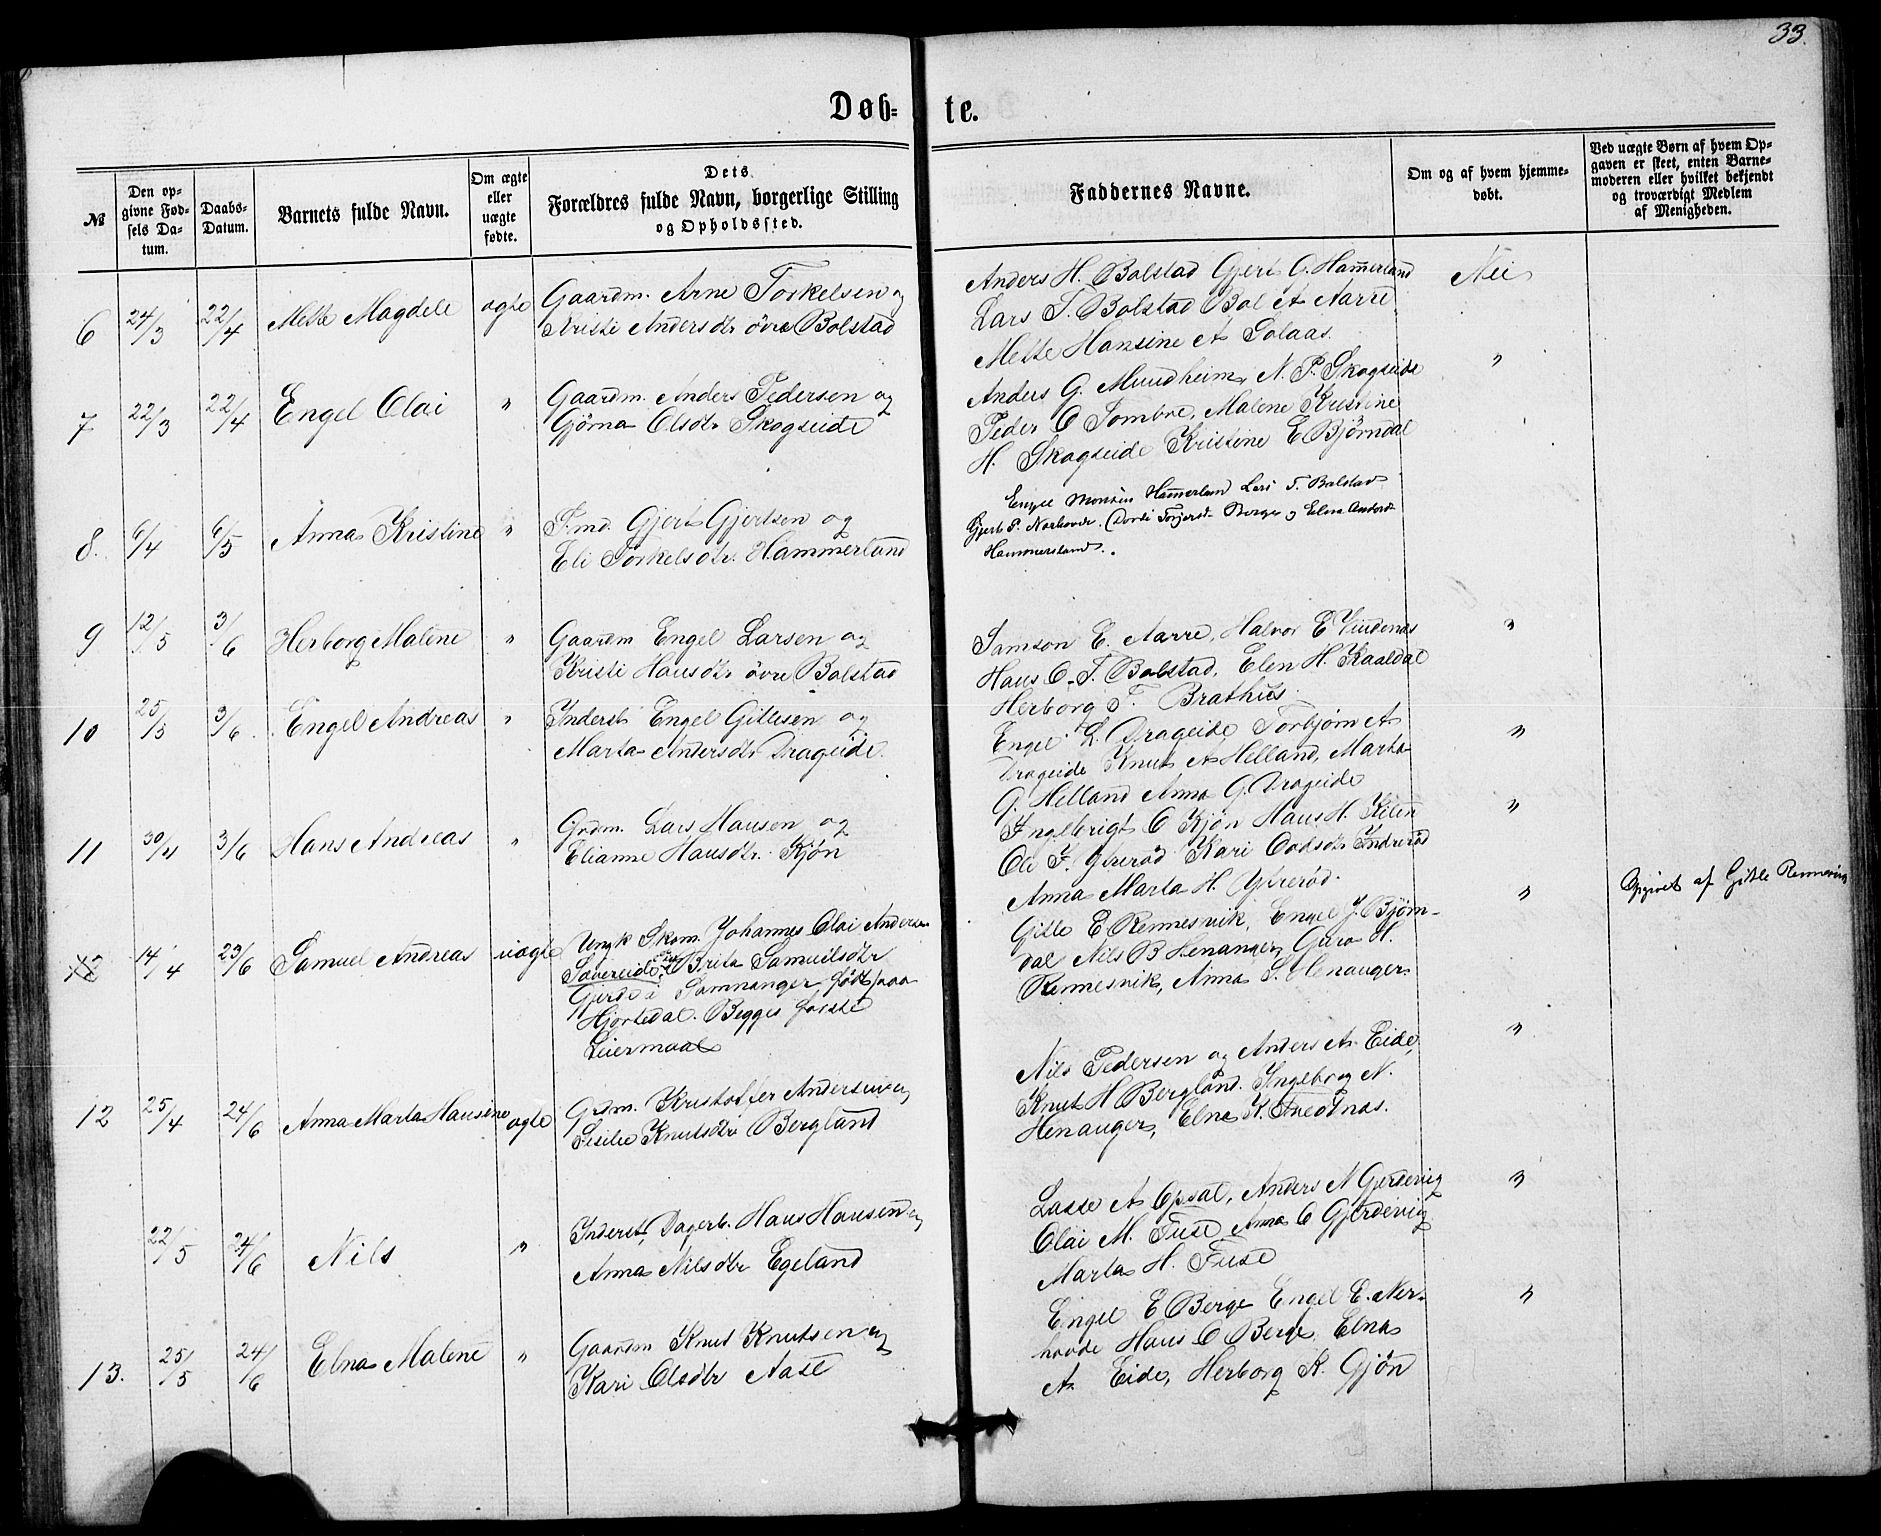 33.
Døb- te.
№
Den opgivne Fødsels Datum.
Daabs-Datum.
Barnets fulde Navn.
Om ægte eller uægte fødte.
Dets Forældres fulde Navn, borgerlige Stilling og Opholdssted.
Faddernes Navne.
Om og af hvem hjemmedøbt.
Ved uægte Børn af hvem Opgaven er skeet, enten Barnemoderen eller hvilket bekjendt og troværdigt Medlem af Menigheden.
6 24/3 22/4 Mette Magdele ægte
Gaardm. Arne Torkelsen og
Kristi Andersdtr øvre Bolstad
Anders H. Bolstad Gjert O. Hammerland
Lars T. Bolstad Bol A Aarre
Mette Hansine A Solaas.
Nei
7 22/3 22/4 Engel Olai "
Gaardm. Anders Pedersen og
Gjørna Olsdtr Skogseide
Anders G. Mundheim, N. P. Skogseide
Peder O Tombre, Malene Kristine
H. Skogseide Kristine E Bjørndal
"
8. 6/4 6/5 Anna Kristine "
Gjert Gjertsen og
Eli Torkelsdtr. Hammerland
Engel Monsen Hammerland Lars T. Bolstad
Gjert P. Nerhovde. Dorte Torjersd. Berge og Elna Andersd
Hammersland.
9 12/5 3/6 Herborg Malene "
Gaardm Engel Larsen og
Kristi Hansdtr øvre Bolstad
Samson E. Aarre, Halvor E Vindenæs
Hans O. T. Bolstad, Elen H. Kaaldal
Herborg T. Brathus.
"
10 25/5 3/6. Engel Andreas "
Inderst Engel Gitlesen og
Marta Andersdtr Drageide.
Engel L. Drageide Torbjørn A
Drageide Knut A Helland, Marta
G. Helland Anna G. Drageide
"
11 30/4 3/6 Hans Andreas "
Grdm. Lars Hansen og
Elianne Hansdtr. Kjøn
Ingebrigt O Kjøn Hans H. Kilen
Ole I. Ytrerød Kari Oddsdtr Indrerød
Anna Marta H. Ytrerød.
"
12 14/4 23/6 Samuel Andreas uægte
Ungk Skom. Johannes Olai Andersen
Sævereide, Brita Samuelsdtr
Gjerde i Samnanger født paa
Hjortedal. Begges første
Leiermaal
Gitle E Rennesvik, Engel J. Bjørn-
dal Nils B Henanger, Guro H.
Rennesvik, Anna S. Henanger
"
Opgivet af Gitle Rennesvik
12 25/4 24/6 Anna Marta Hansine ægte
Grdm. Kristoffer Andersen og
Sesilie Knutsdtr Bergland
Nils Pedersen og Anders A. Eide,
Knut H Bergland. Ingeborg N.
Henanger, Elna K. Tvedtnas.
"
22/5 24/6 Nils "
Inderst, Dagarb. Hans Hansen og
Anna Nilsdtr Egeland
Lasse A Opsal, Anders N Gjerdevig
Olai M. Fuse, Anna O Gjerdevig
Marta H. Fuse
"
13. 25/5 24/6 Elna Malene "
Gaardm Knut Knutsen og
Kari Olsdtr Aase
Engel E Berge Engel E. Ner-
hovde Hans O Berge, Elna
A. Eide, Herborg K. Gjøn
"